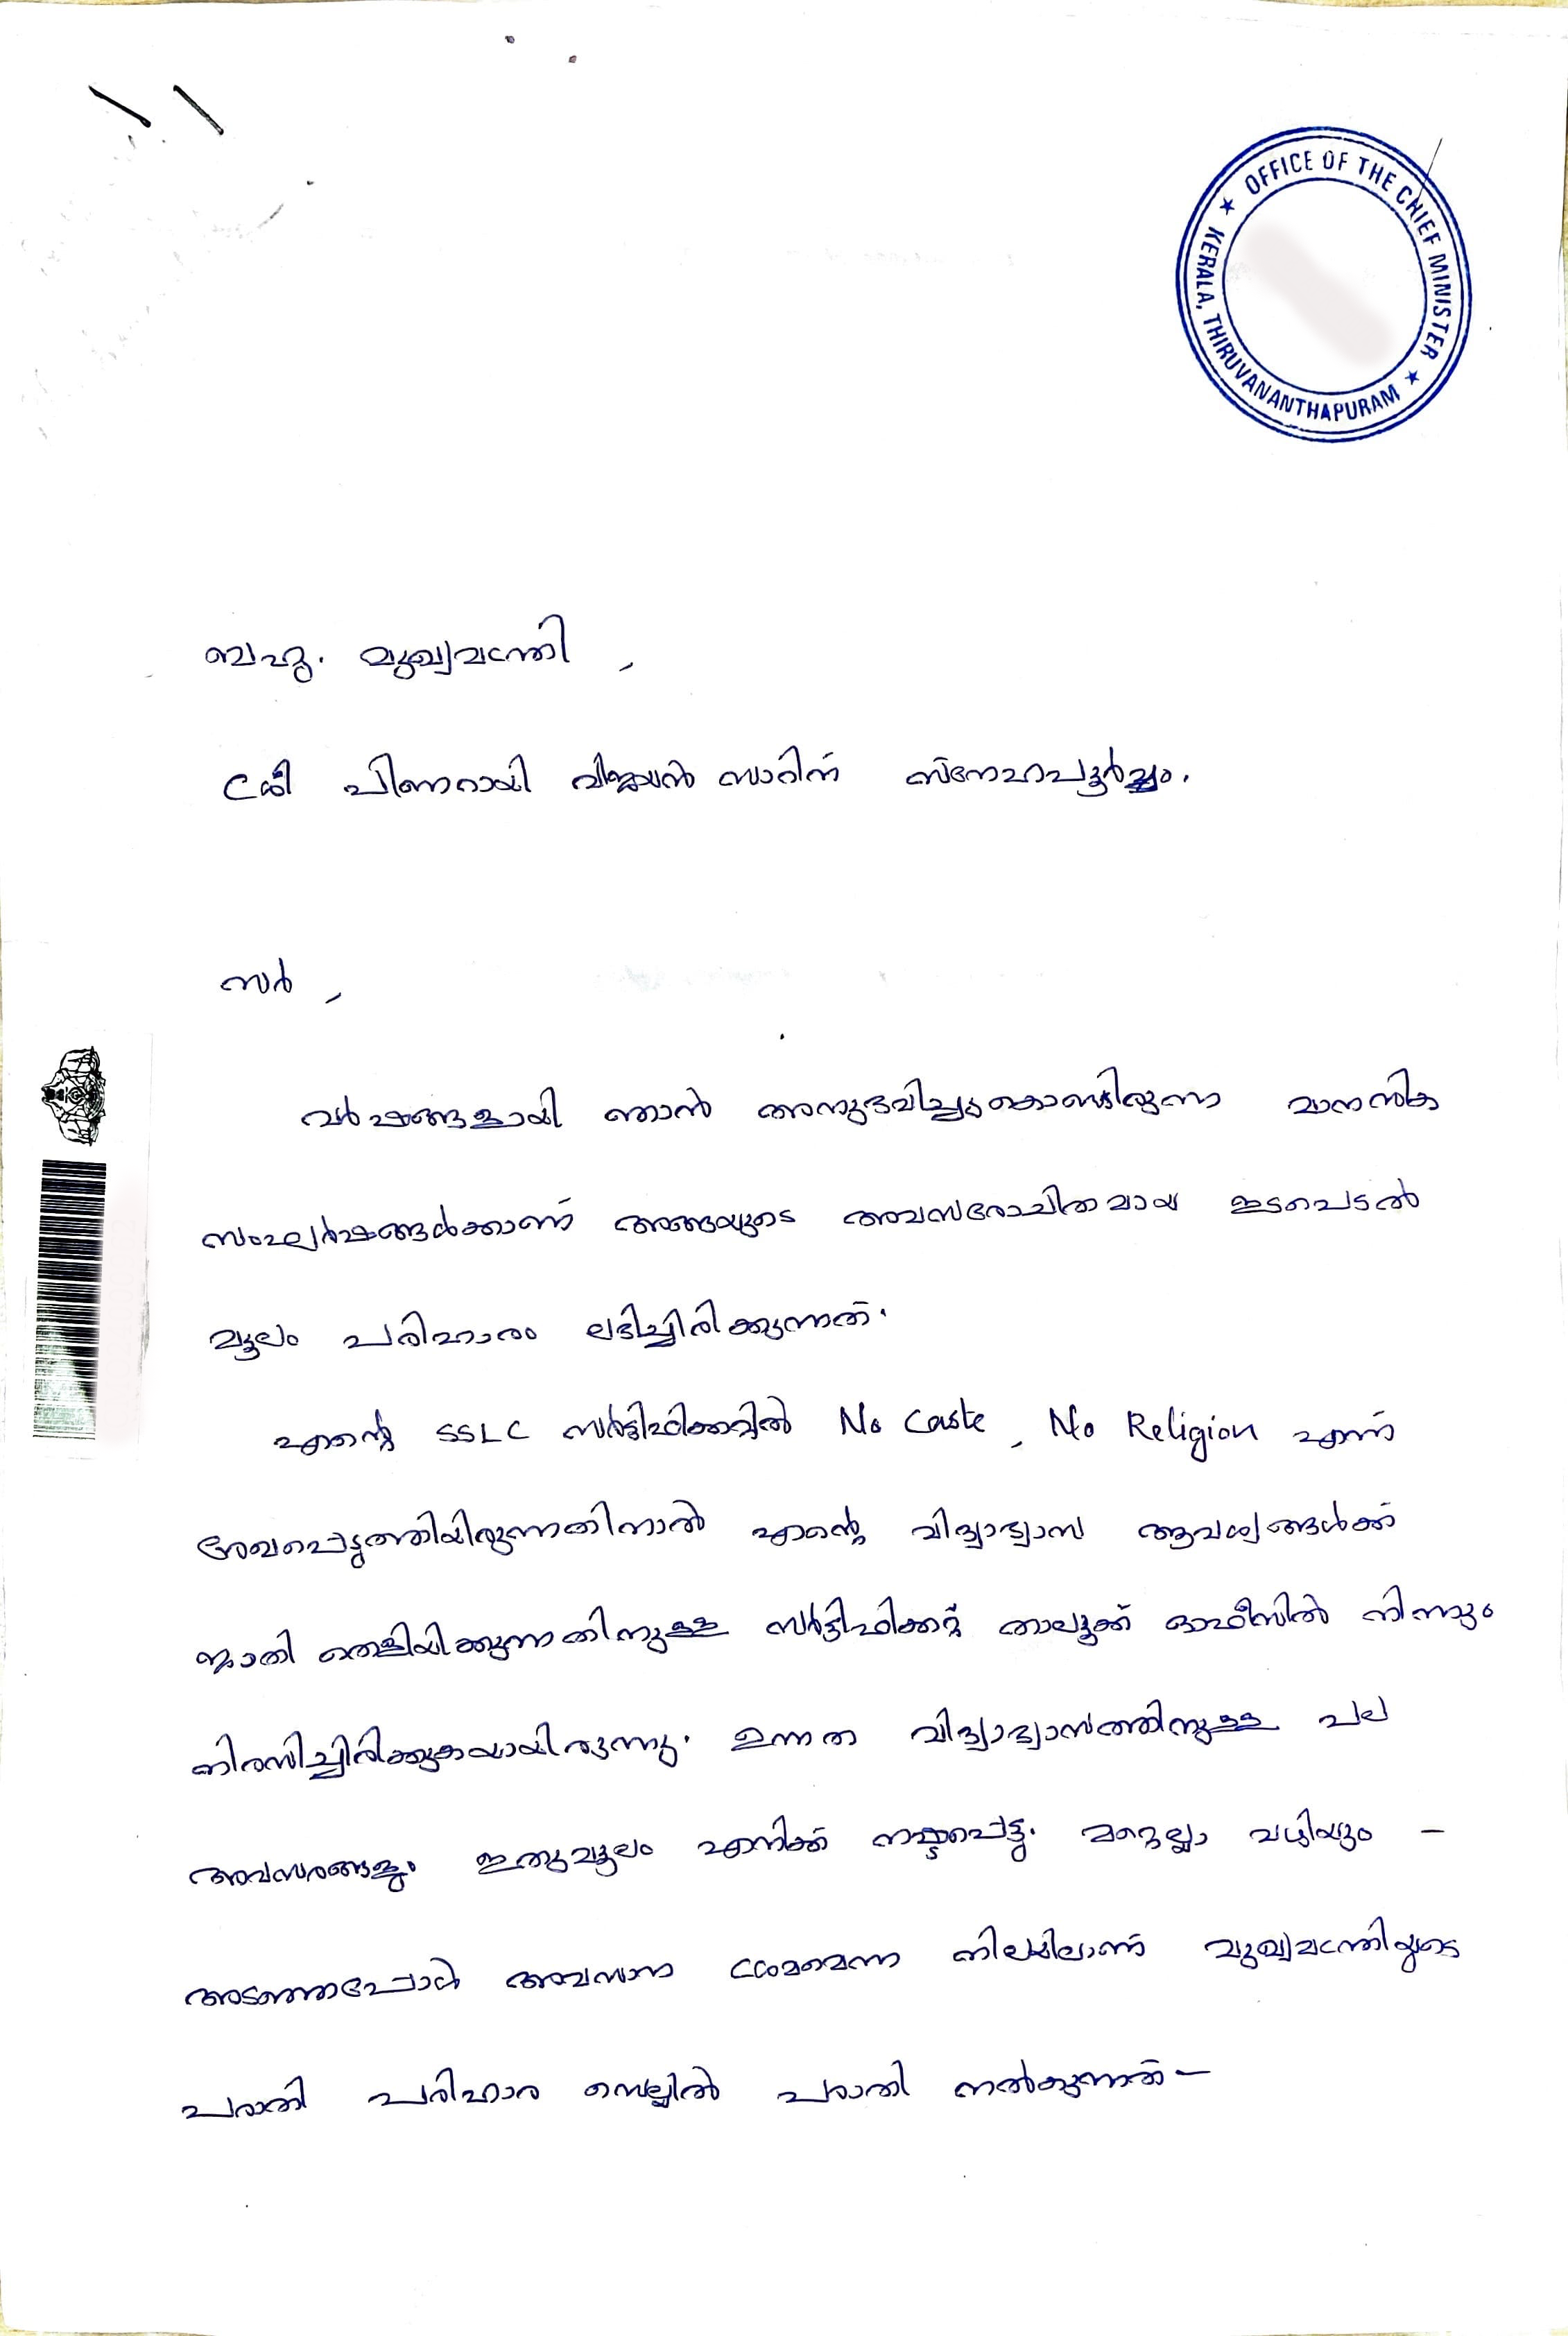 OFFICE OF THE CHIEF MINISTER
KERALA, THIRUVANANTHAPURAM
ബഹു. മുഖ്യമന്ത്രി,
ശ്രീ പിണറായി വിജയൻ സാറിന് സ്നേഹപൂർവ്വം.
സർ,
വർഷങ്ങളായി ഞാൻ അനുഭവിച്ചുകൊണ്ടിരുന്ന മാനസിക
സംഘർഷങ്ങൾക്കാണ് അങ്ങയുടെ അവസരോചിതമായ ഇടപെടൽ
മൂലം പരിഹാരം ലഭിച്ചിരിക്കുന്നത്.
എന്റെ SSLC സർട്ടിഫിക്കറ്റിൽ No Caste, No Religion എന്ന്
രേഖപ്പെടുത്തിയിരുന്നതിനാൽ എന്റെ വിദ്യാഭ്യാസ ആവശ്യങ്ങൾക്ക്
ജാതി തെളിയിക്കുന്നതിനുള്ള സർട്ടിഫിക്കറ്റ് താലൂക്ക് ഓഫീസിൽ നിന്നും
നിരസിച്ചിരിക്കുകയായിരുന്നു. ഉന്നത വിദ്യാഭ്യാസത്തിനുള്ള പല
അവസരങ്ങളും ഇതുമൂലം എനിക്ക് നഷ്ടപ്പെട്ടു. മറ്റെല്ലാ വഴിയും –
അടഞ്ഞപ്പോൾ അവസാന ശ്രമമെന്ന നിലയിലാണ് മുഖ്യമന്ത്രിയുടെ
പരാതി പരിഹാര സെല്ലിൽ പരാതി നൽകുന്നത് –